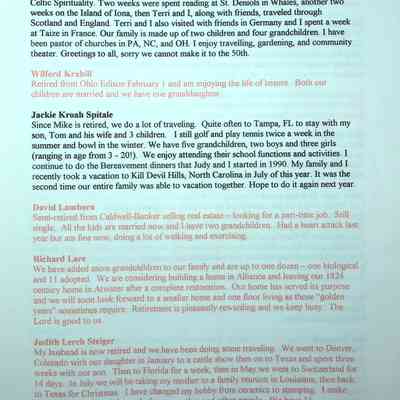 Celtic Spirituality. Two weeks were spent reading at St. Deniols in Whales, another two
weeks on the Island of Iona, then Terri and I, along with friends, traveled through
Scotland and England. Terri and I also visited with friends in Germany and I spent a week
at Taize in France. Our family is made up of two children and four grandchildren. I have
been pastor of churches in PA, NC, and OH. I enjoy travelling, gardening, and community
theater. Greetings to all, sorry we cannot make it to the 50th.
Wilford Krabill
Retired from Ohio Edison February 1 and am enjoying the life of leisure. Both our
children are married and we have one granddaughter.
Jackie Kroah Spitale
Since Mike is retired, we do a lot of traveling. Quite often to Tampa, FL to stay with my
son, Tom and his wife and 3 children. I still golf and play tennis twice a week in the
summer and bowl in the winter. We have five grandchildren, two boys and three girls
(ranging in age from 3 - 20!). We enjoy attending their school functions and activities. I
continue to do the Bereavement dinners that Judy and I started in 1990. My family and I
recently took a vacation to Kill Devil Hills, North Carolina in July of this year. It was the
second time our entire family was able to vacation together. Hope to do it again next year.
David Lamborn
Semi-retired from Caldwell-Banker selling real estate - looking for a part-time job. Still
single. All the kids are married now and I have two grandchildren. Had a heart attack last
year but am fine now, doing a lot of walking and exercising.
Richard Lare
We have added more grandchildren to our family and are up to one dozen - one biological
and 11 adopted. We are considering building a home in Alliance and leaving our 1824
century home in Atwater after a complete restoration. Our home has served its purpose
and we will soon look forward to a smaller home and one floor living as those "golden
years" sometimes require. Retirement is pleasantly rewarding and we keep busy. The
Lord is good to us.
Judith Lerch Steiger
My husband is now retired and we have been doing some traveling. We went to Denver,
Colorado with our daughter in January to a cattle show then on to Texas and spent three
weeks with our son. Then to Florida for a week, then in May we went to Switzerland for
14 days. In July we will be taking my mother to a family reunion in Louisiana, then back
to Texas for Christmas. I have changed my hobby from ceramics to stamping. I make